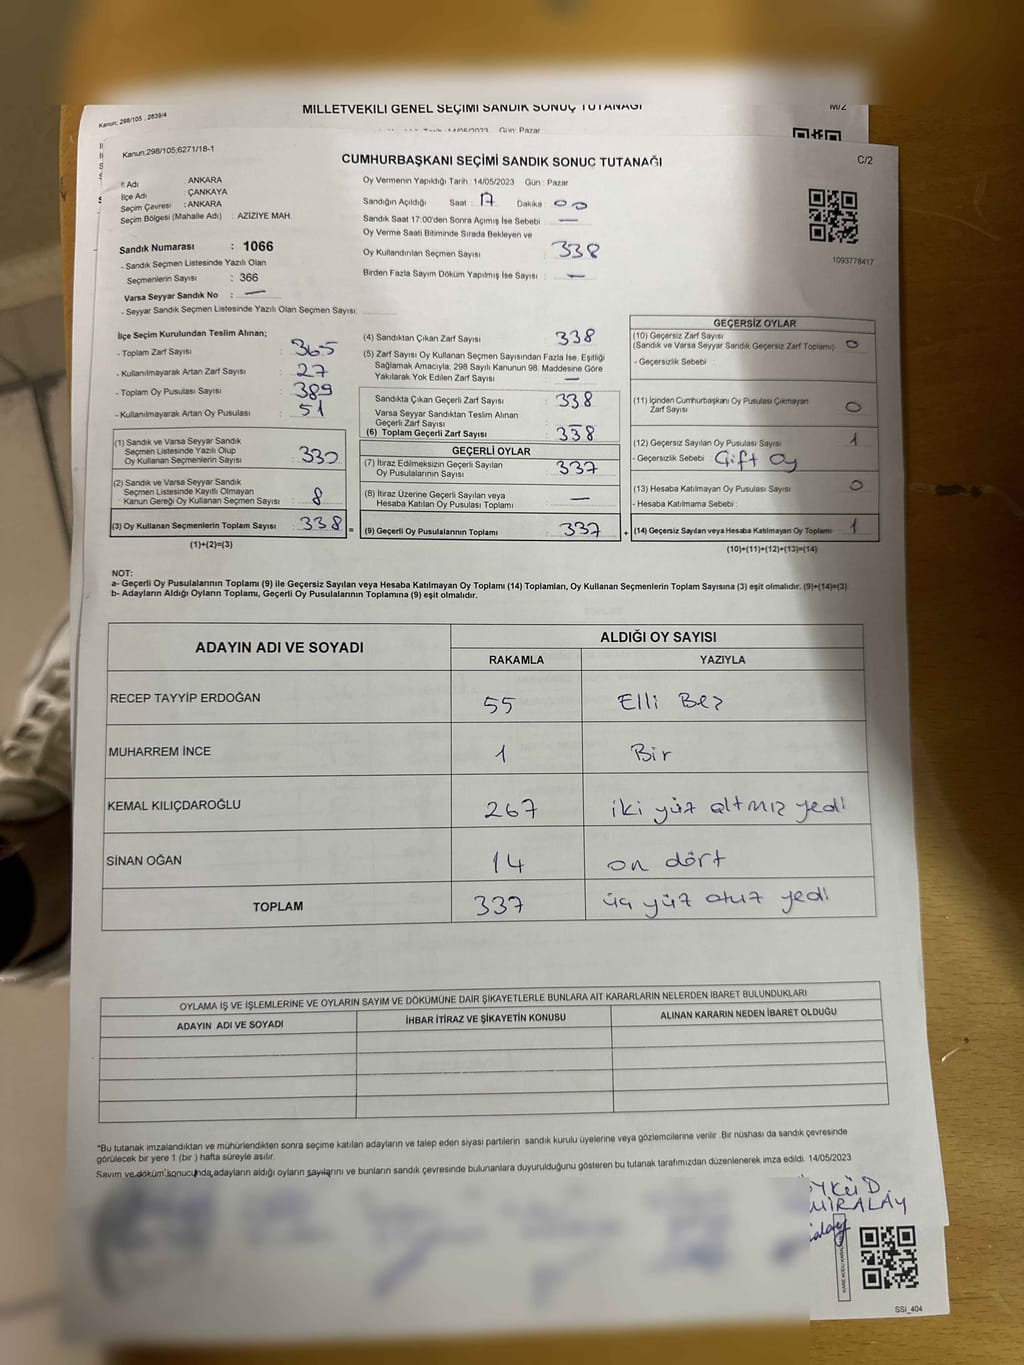 Kanun: 298/105 , 2839/4
MİLLETVEKİLİ GENEL SEÇİMİ SANDIK SONUÇ TUTANAĞI
Gün: Pazar
Kanun:298/105;6271/18-1
CUMHURBAŞKANI SEÇİMİ SANDIK SONUÇ TUTANAĞI
C/2
İl Adı : ANKARA
İlçe Adı : ÇANKAYA
Seçim Çevresi : ANKARA
Seçim Bölgesi (Mahalle Adı) : AZİZİYE MAH.
Oy Vermenin Yapıldığı Tarih : 14/05/2023 Gün : Pazar
Sandığın Açıldığı Saat : 17 Dakika : 00
Sandık Saat 17:00'den Sonra Açımış İse Sebebi : —
Oy Verme Saati Bitiminde Sırada Bekleyen ve
Oy Kullandırılan Seçmen Sayısı : 338
Birden Fazla Sayım Döküm Yapılmış İse Sayısı : —
1093778417
Sandık Numarası : 1066
- Sandık Seçmen Listesinde Yazılı Olan
Seçmenlerin Sayısı : 366
Varsa Seyyar Sandık No : —
- Seyyar Sandık Seçmen Listesinde Yazılı Olan Seçmen Sayısı:
İlçe Seçim Kurulundan Teslim Alınan;
- Toplam Zarf Sayısı : 365
- Kullanılmayarak Artan Zarf Sayısı : 27
- Toplam Oy Pusulası Sayısı : 389
- Kullanılmayarak Artan Oy Pusulası : 51
(1) Sandık ve Varsa Seyyar Sandık
Seçmen Listesinde Yazılı Olup
Oy Kullanan Seçmenlerin Sayısı : 330
(2) Sandık ve Varsa Seyyar Sandık
Seçmen Listesinde Kayıtlı Olmayan
Kanun Gereği Oy Kullanan Seçmen Sayısı : 8
(3) Oy Kullanan Seçmenlerin Toplam Sayısı : 338 =
(1)+(2)=(3)
(4) Sandıktan Çıkan Zarf Sayısı : 338
(5) Zarf Sayısı Oy Kullanan Seçmen Sayısından Fazla İse, Eşitliği
Sağlamak Amacıyla, 298 Sayılı Kanunun 98. Maddesine Göre
Yakılarak Yok Edilen Zarf Sayısı : —
Sandıkta Çıkan Geçerli Zarf Sayısı : 338
Varsa Seyyar Sandıktan Teslim Alınan
Geçerli Zarf Sayısı :
(6) Toplam Geçerli Zarf Sayısı : 338
GEÇERLİ OYLAR
(7) İtiraz Edilmeksizin Geçerli Sayılan
Oy Pusulalarının Sayısı : 337
(8) İtiraz Üzerine Geçerli Sayılan veya
Hesaba Katılan Oy Pusulası Toplamı : —
(9) Geçerli Oy Pusulalarının Toplamı : 337 +
GEÇERSİZ OYLAR
(10) Geçersiz Zarf Sayısı
(Sandık ve Varsa Seyyar Sandık Geçersiz Zarf Toplamı) : 0
- Geçersizlik Sebebi :
(11) İçinden Cumhurbaşkanı Oy Pusulası Çıkmayan
Zarf Sayısı : 0
(12) Geçersiz Sayılan Oy Pusulası Sayısı : 1
- Geçersizlik Sebebi : Çift Oy
(13) Hesaba Katılmayan Oy Pusulası Sayısı : 0
- Hesaba Katılmama Sebebi :
(14) Geçersiz Sayılan veya Hesaba Katılmayan Oy Toplamı : 1
(10)+(11)+(12)+(13)=(14)
NOT:
a- Geçerli Oy Pusulalarının Toplamı (9) ile Geçersiz Sayılan veya Hesaba Katılmayan Oy Toplamı (14) Toplamları, Oy Kullanan Seçmenlerin Toplam Sayısına (3) eşit olmalıdır. (9)+(14)=(3)
b- Adayların Aldığı Oyların Toplamı, Geçerli Oy Pusulalarının Toplamına (9) eşit olmalıdır.
ADAYIN ADI VE SOYADI ALDIĞI OY SAYISI
RAKAMLA YAZIYLA
RECEP TAYYİP ERDOĞAN 55 Elli Beş
MUHARREM İNCE 1 Bir
KEMAL KILIÇDAROĞLU 267 iki yüz altmız yedi
SİNAN OĞAN 14 on dört
TOPLAM 337 üç yüz otuz yedi
OYLAMA İŞ VE İŞLEMLERİNE VE OYLARIN SAYIM VE DÖKÜMÜNE DAİR ŞİKAYETLERLE BUNLARA AİT KARARLARIN NELERDEN İBARET BULUNDUKLARI
ADAYIN ADI VE SOYADI İHBAR İTİRAZ VE ŞİKAYETİN KONUSU ALINAN KARARIN NEDEN İBARET OLDUĞU
*Bu tutanak imzalandıktan ve mühürlendikten sonra seçime katılan adayların ve talep eden siyasi partilerin sandık kurulu üyelerine veya gözlemcilerine verilir. Bir nüshası da sandık çevresinde
görülecek bir yere 1 (bir ) hafta süreyle asılır.
Sayım ve döküm sonucunda, adayların aldığı oyların sayılarını ve bunların sandık çevresinde bulunanlara duyurulduğunu gösteren bu tutanak tarafımızdan düzenlenerek imza edildi. 14/05/2023
SSI_404